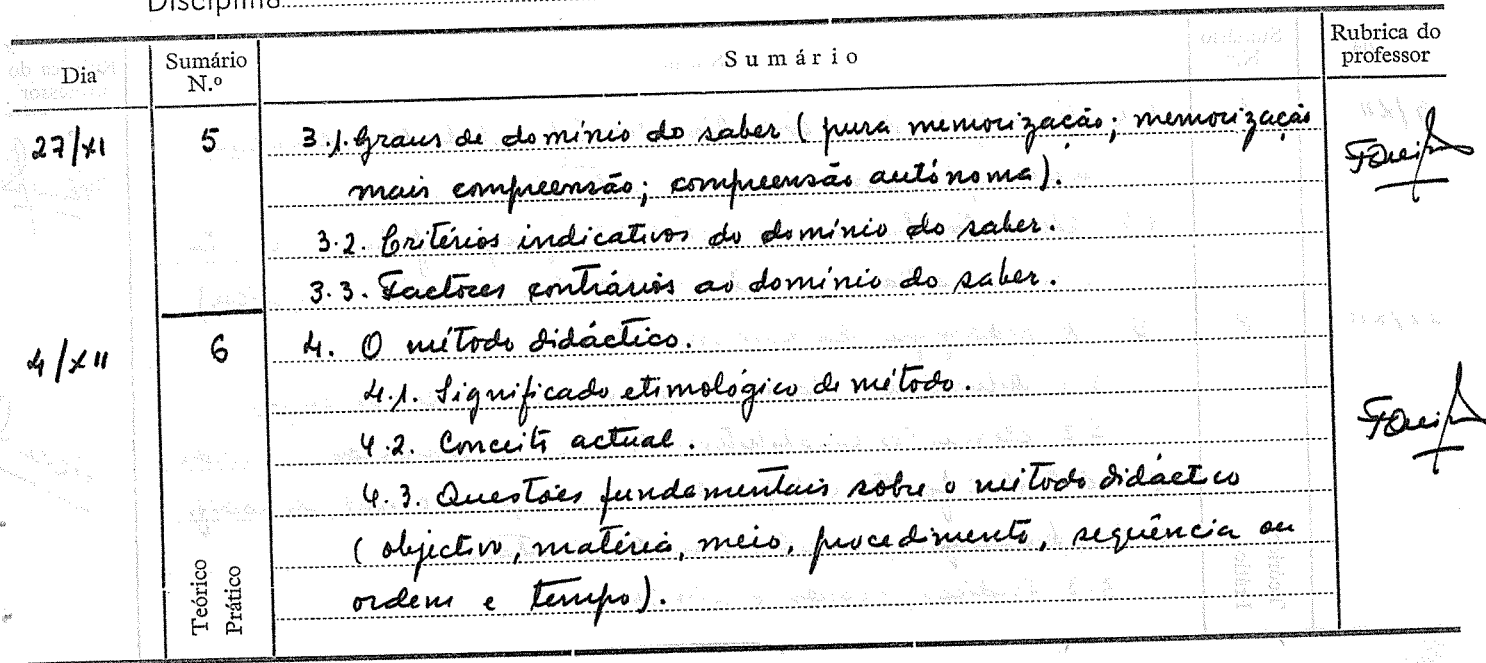 Disciplina
Dia
Sumário N.º
Sumário
Rubrica do professor
27/XI
5
3.1. Graus de domínio do saber (pura memorização; memorização
mais compreensão; compreensão autónoma).
3.2. Critérios indicativos do domínio do saber.
3.3. Factores contrários ao domínio do saber.
4/XII
6
4. O método didáctico.
4.1. Significado etimológico de método.
4.2. Conceito actual.
4.3. Questões fundamentais sobre o método didáctico
(objectivo, matéria, meio, procedimento, seqüência ou
ordem e tempo).
Teórico
Prático